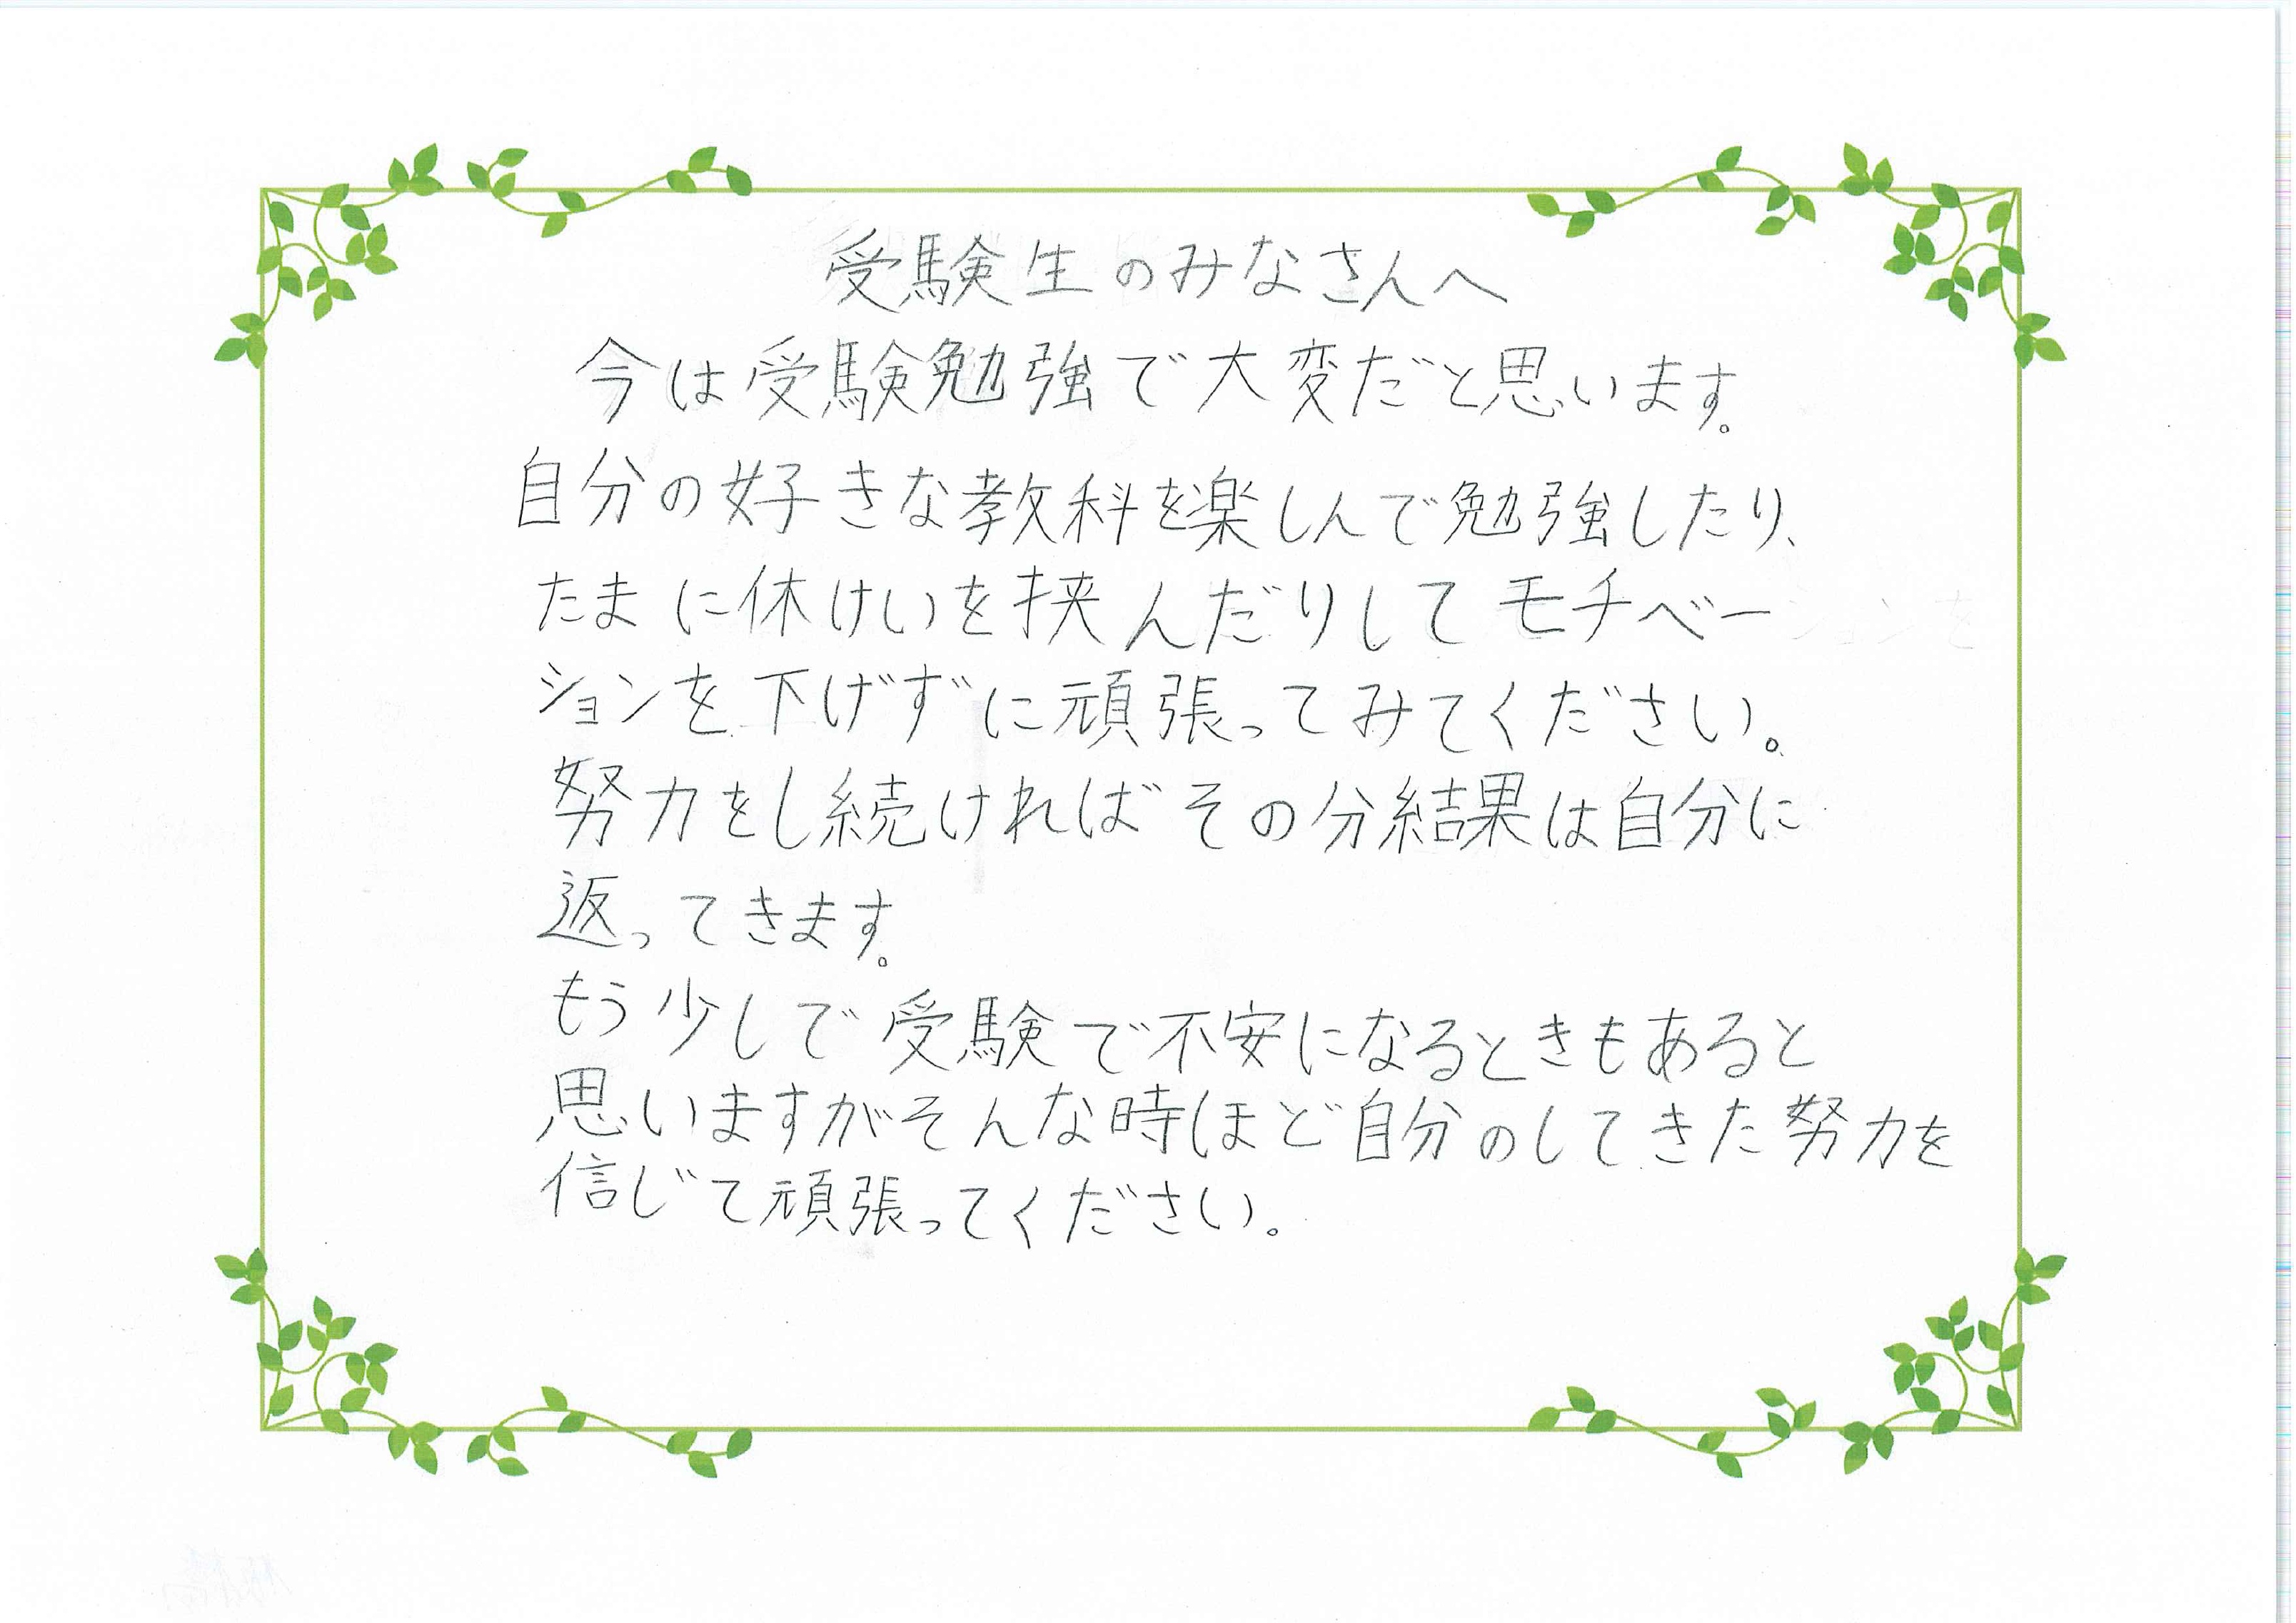 受験生のみなさんへ
今は受験勉強で大変だと思います。
自分の好きな教科を楽しんで勉強したり、
たまに休けいを挟んだりしてモチベー
ションを下げずに頑張ってみてください。
努力をし続ければその分結果は自分に
返ってきます。
もう少しで受験で不安になるときもあると
思いますがそんな時ほど自分のしてきた努力を
信じて頑張ってください。